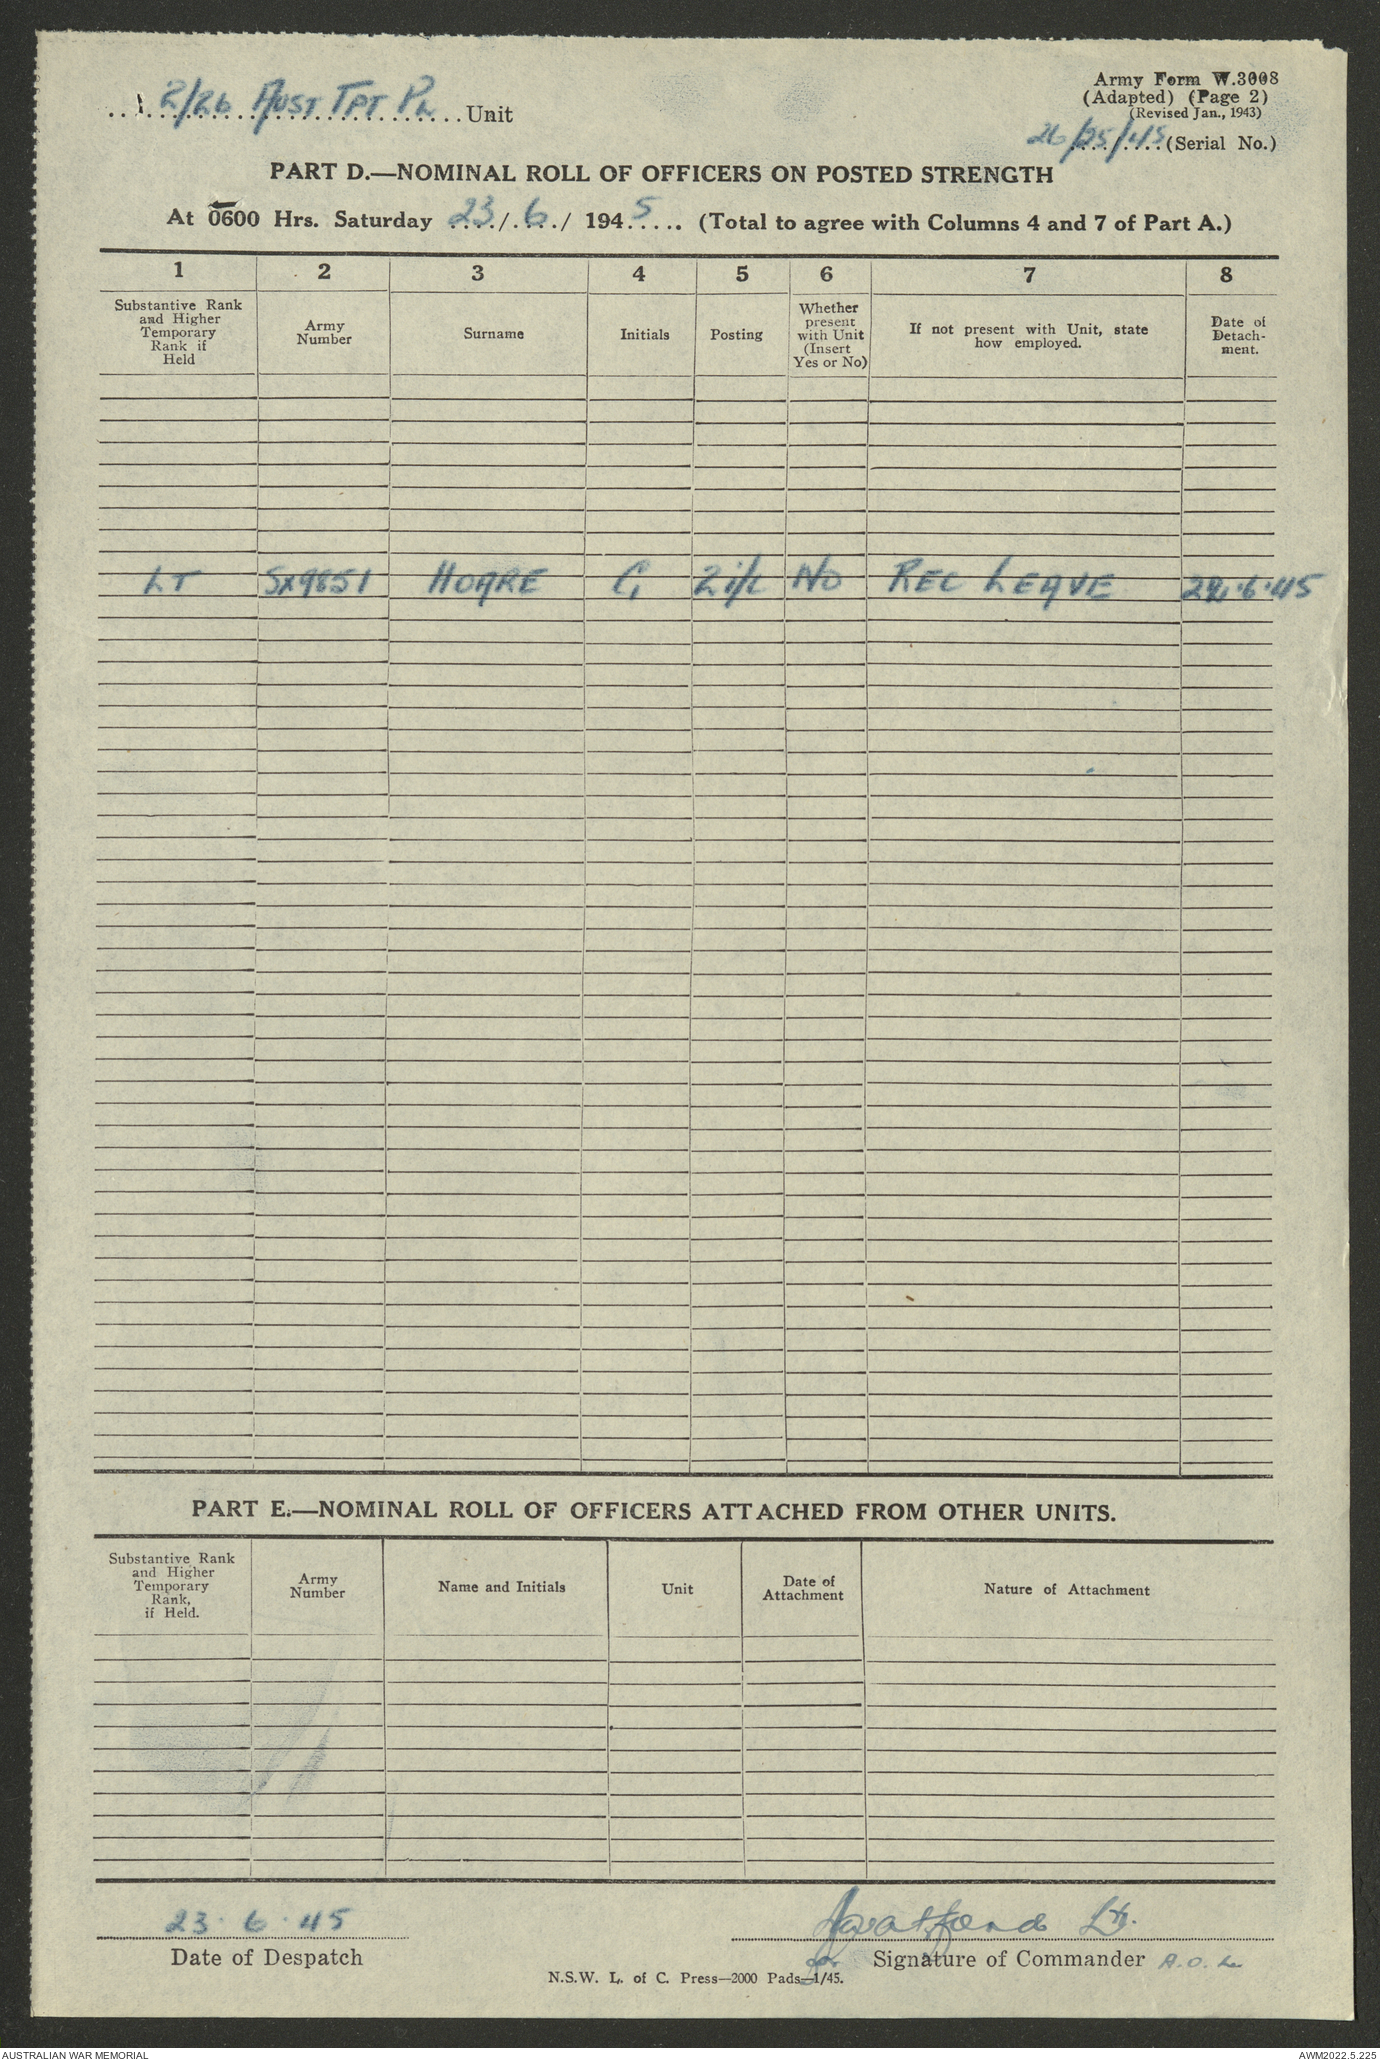 2/26 AUST TPT PL Unit
Army Form W.3008
(Adapted) (Page 2)
(Revised Jan., 1943)
26/25/45 (Serial No.)
PART D.—NOMINAL ROLL OF OFFICERS ON POSTED STRENGTH
At 0600 Hrs. Saturday 23/6/1945 (Total to agree with Columns 4 and 7 of Part A.)
1 2 3 4 5 6 7 8
Substantive Rank and Higher Temporary Rank if Held
Army Number
Surname
Initials
Posting
Whether present with Unit (Insert Yes or No)
If not present with Unit, state how employed.
Date of Detach-ment.
LT SX9851 HOARE C, 2 i/c NO REC LEAVE .6.45
PART E.—NOMINAL ROLL OF OFFICERS ATTACHED FROM OTHER UNITS.
Substantive Rank and Higher Temporary Rank, if Held.
Army Number
Name and Initials
Unit
Date of Attachment
Nature of Attachment
23.6.45
Lt.
Date of Despatch
for Signature of Commander
N.S.W. L. of C. Press—2000 Pads—1/45.
AUSTRALIAN WAR MEMORIAL
AWM2022.5.225